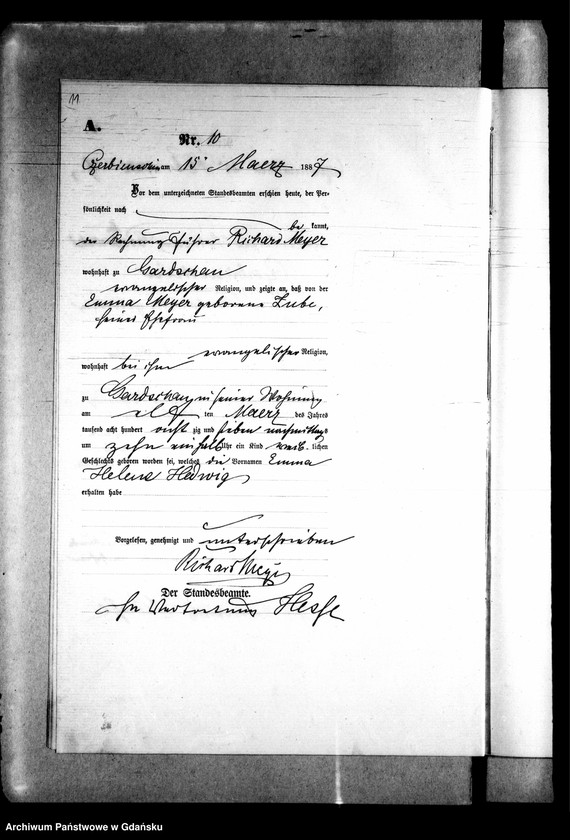 11
A.
Nr. 10
Czerbienschin am 15. Maerz 1887
Vor dem unterzeichneten Standesbeamten erschien heute, der Per-
sönlichkeit nach
be kannt,
der Rechnungsführer Richard Meyer
wohnhaft zu Gardschau
evangelischer Religion, und zeigte an, daß von der
Emma Meyer geborene Lube,
seiner Ehefrau
evangelischer Religion,
wohnhaft bei ihm
zu Gardschau in seiner Wohnung
am elften Maerz des Jahres
tausend acht hundert achtzig und sieben nachmittags
um zehn einhalb Uhr ein Kind weiblichen
Geschlechts geboren worden sei, welches die Vornamen Emma
Helene Hedwig
erhalten habe
Vorgelesen, genehmigt und unterschrieben
Richard Meyer
Der Standesbeamte.
In Vertretung Hesse
Archiwum Państwowe w Gdańsku